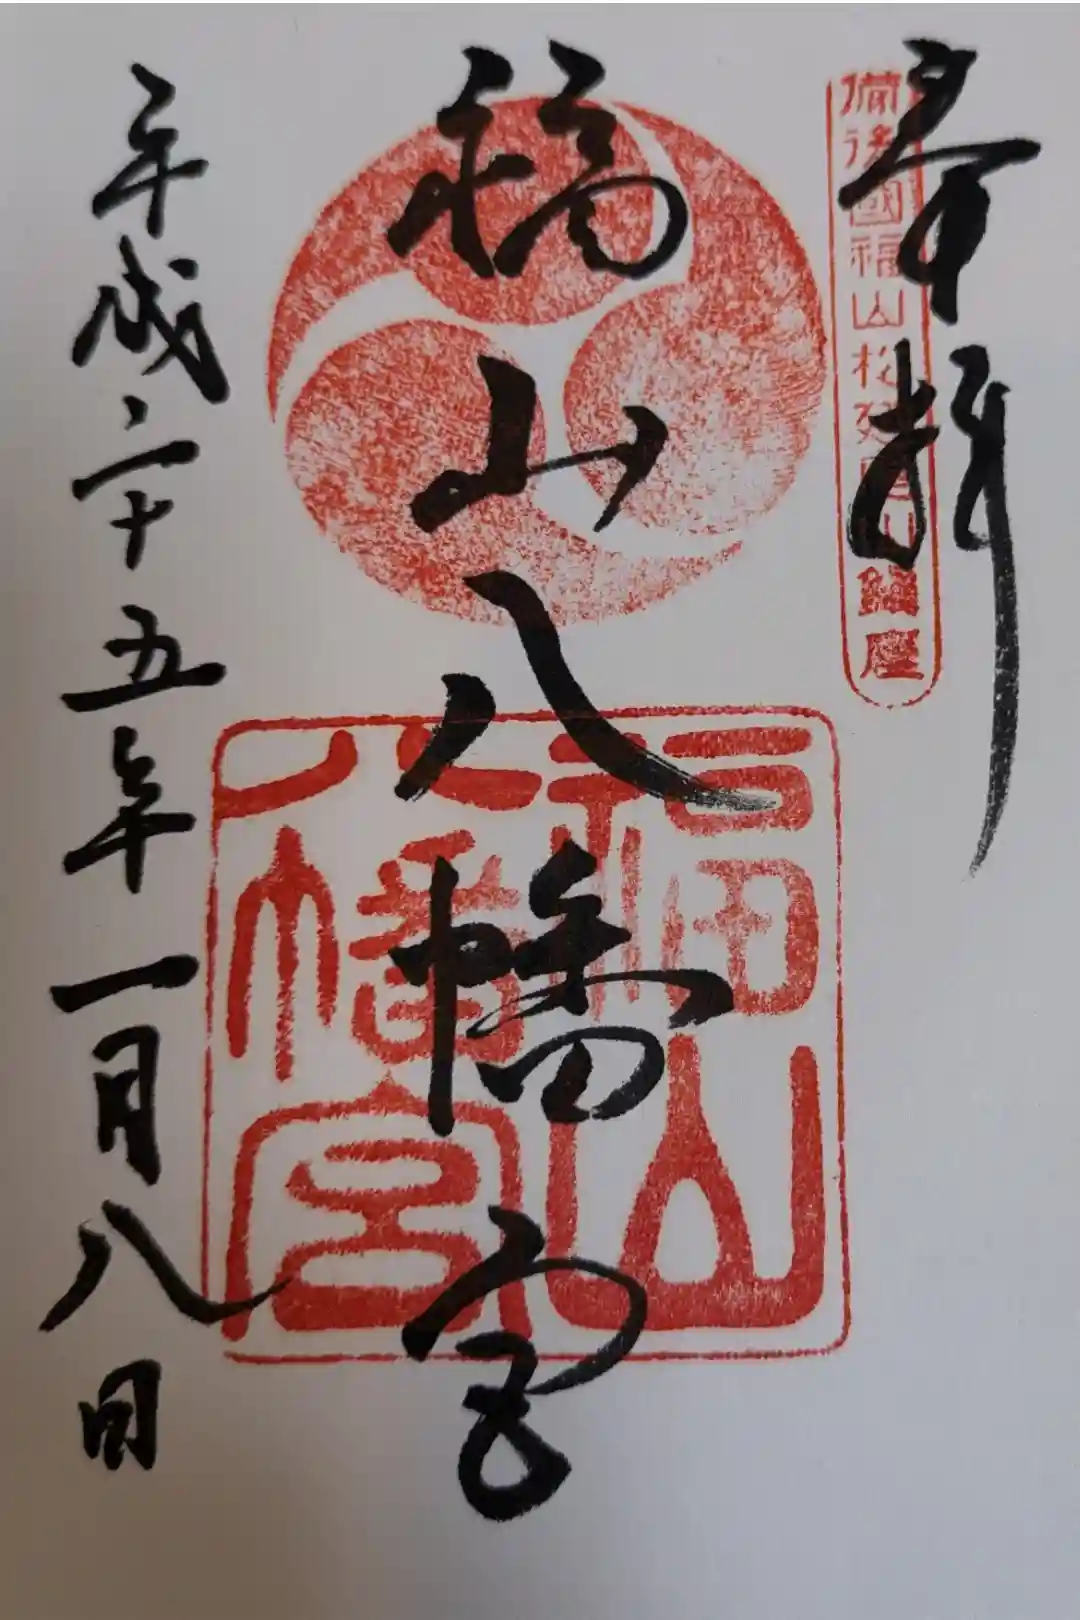 奉拝
備後國福山松廼尾山鎮座
福山八幡宮
福山
八幡宮
平成二十五年一月八日